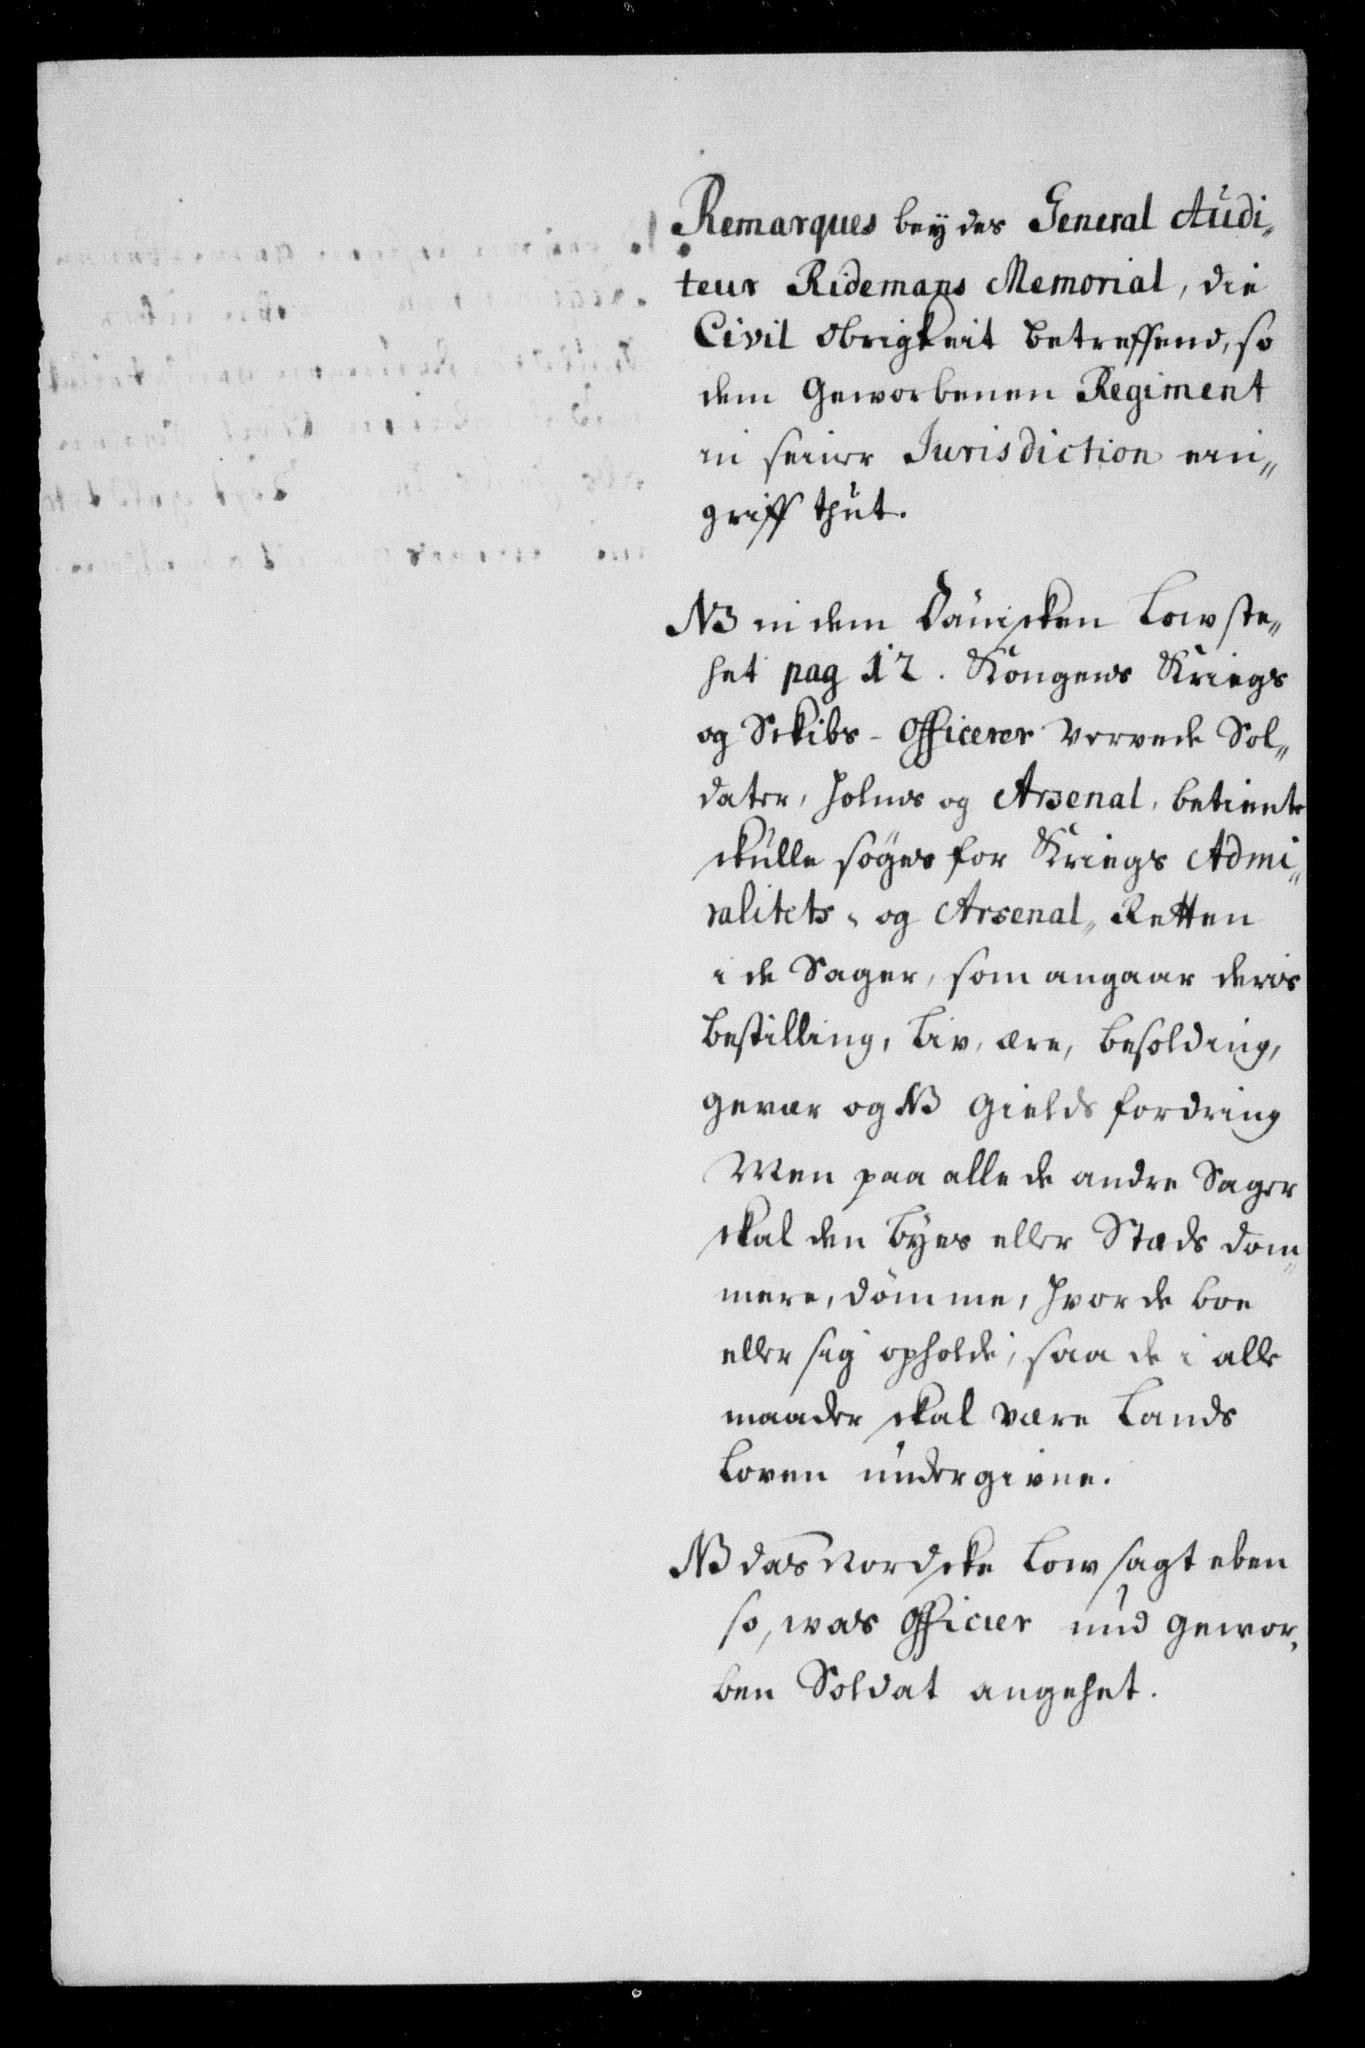 Remarques bey des General Audi„
teur Ridemans Memorial, die
Civil Obrigkeit betreffend, so
dem Geworbenen Regiment
in seiner Jurisdiction ein„
griff thut.
NB in dem Dänischen Low ste„
het pag 12. Kongens Kriegs
og Skibs-Officerer Vervede Sol„
dater, Holms og Arsenal, betiente
skulle söges for Kriegs Admi„
ralitets, og Arsenal„ Retten
i de Sager, som angaar deris
bestilling, Liv, ære, besolding,
gevær og NB gields fordring
Men paa alle de andre Sager
skal den byes eller Stæds dom„
mere, dömme, hvor de boe
eller sig opholde, saa de i alle
maader skal være Lands
Loven undergivne.
NB das Nordske Low sagt eben
so, was Officier und gewor„
ben Soldat angehet.